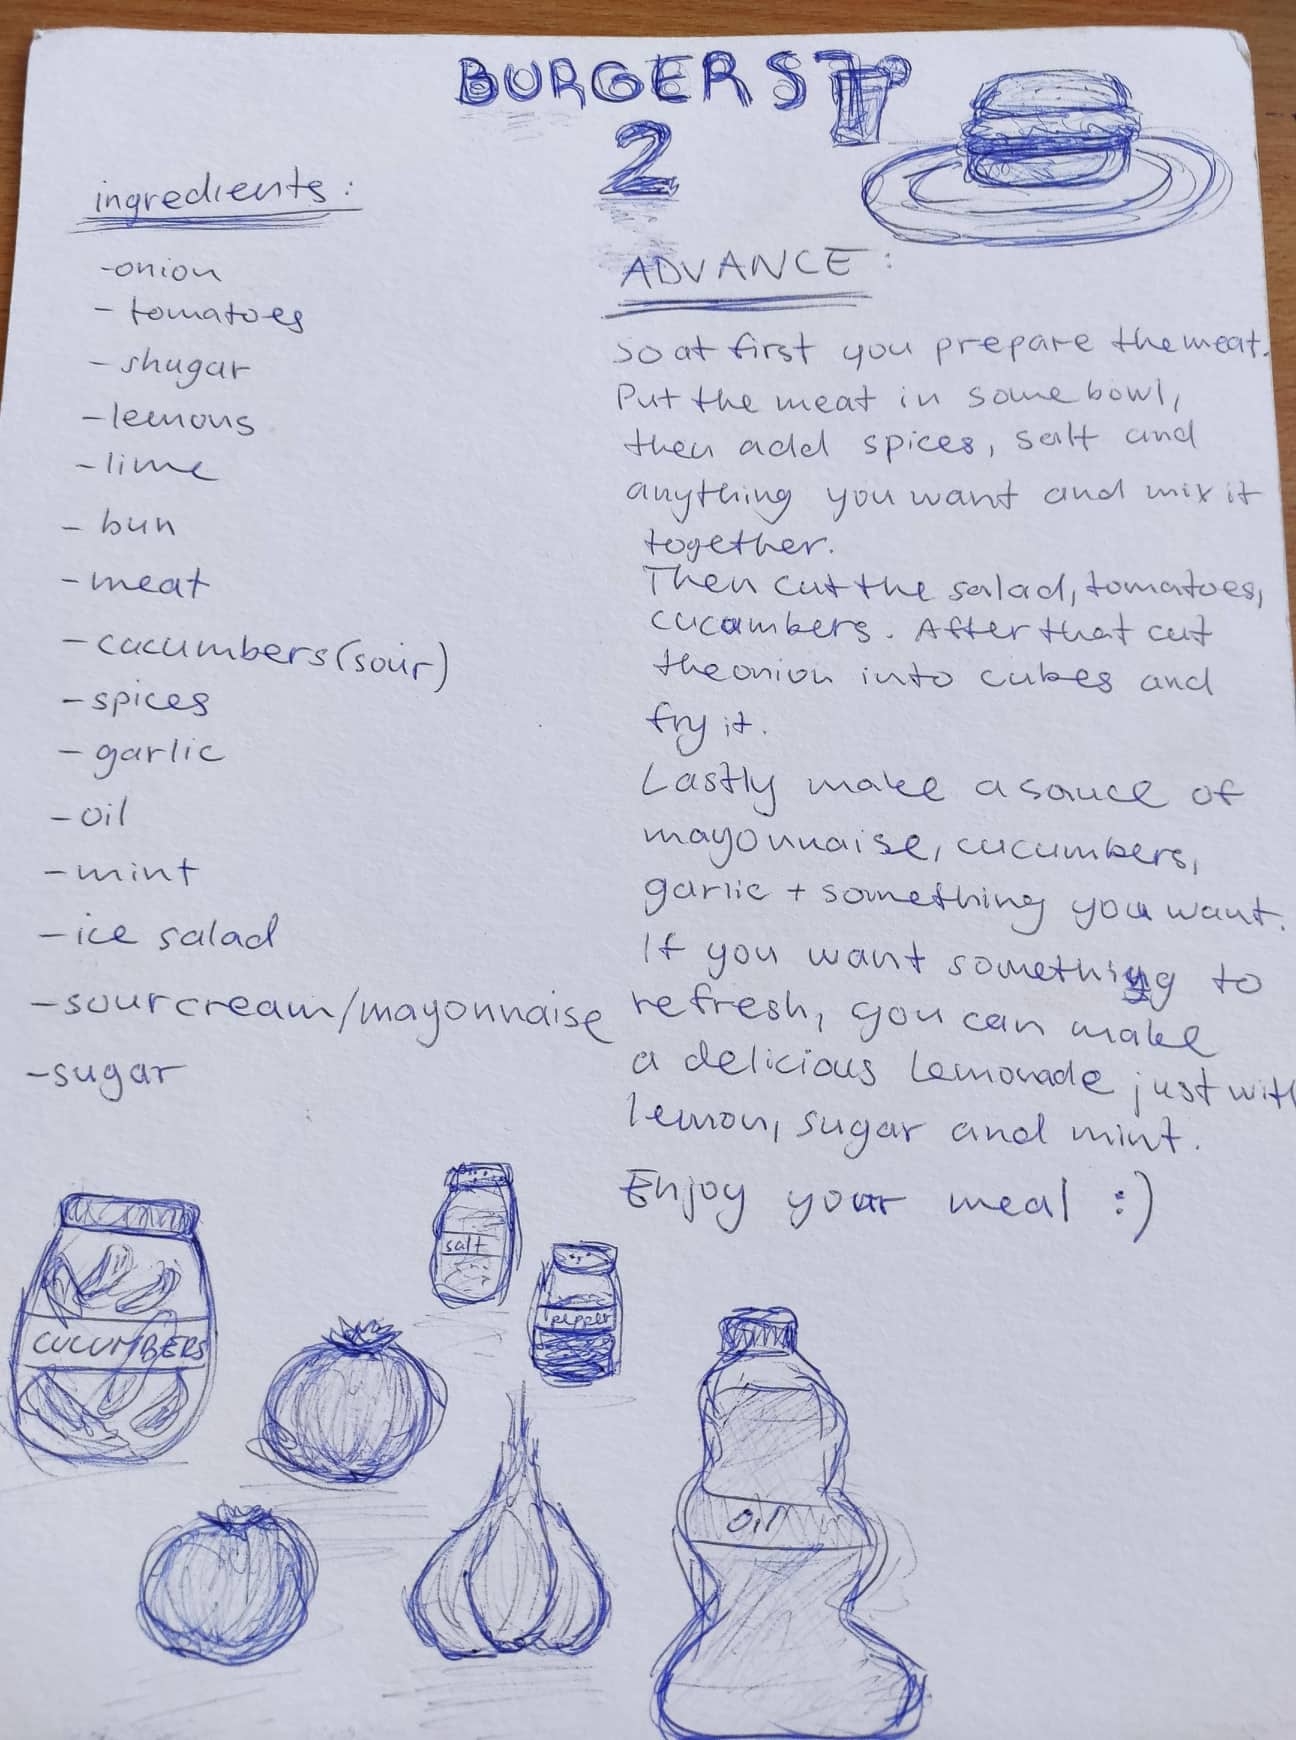 BURGERS
2
ingredients:
-onion
- tomatoes
- shugar
-lemons
-lime
- bun
-meat
-cucumbers(sour)
-spices
- garlic
-oil
-mint
-ice salad
-sourcream/mayonnaise
-sugar
ADVANCE:
so at first you prepare the meat.
Put the meat in some bowl,
then add spices, salt and
anything you want and mix it
together.
Then cut the salad, tomatoes,
cucambers. After that cut
the onion into cubes and
fry it.
Lastly make a sauce of
mayonnaise, cucumbers,
garlic + something you want.
If you want something to
refresh, you can make
a delicious Lemonade just with
lemon, sugar and mint.
Enjoy your meal :)
salt
pepper
CUCUMBERS
oil